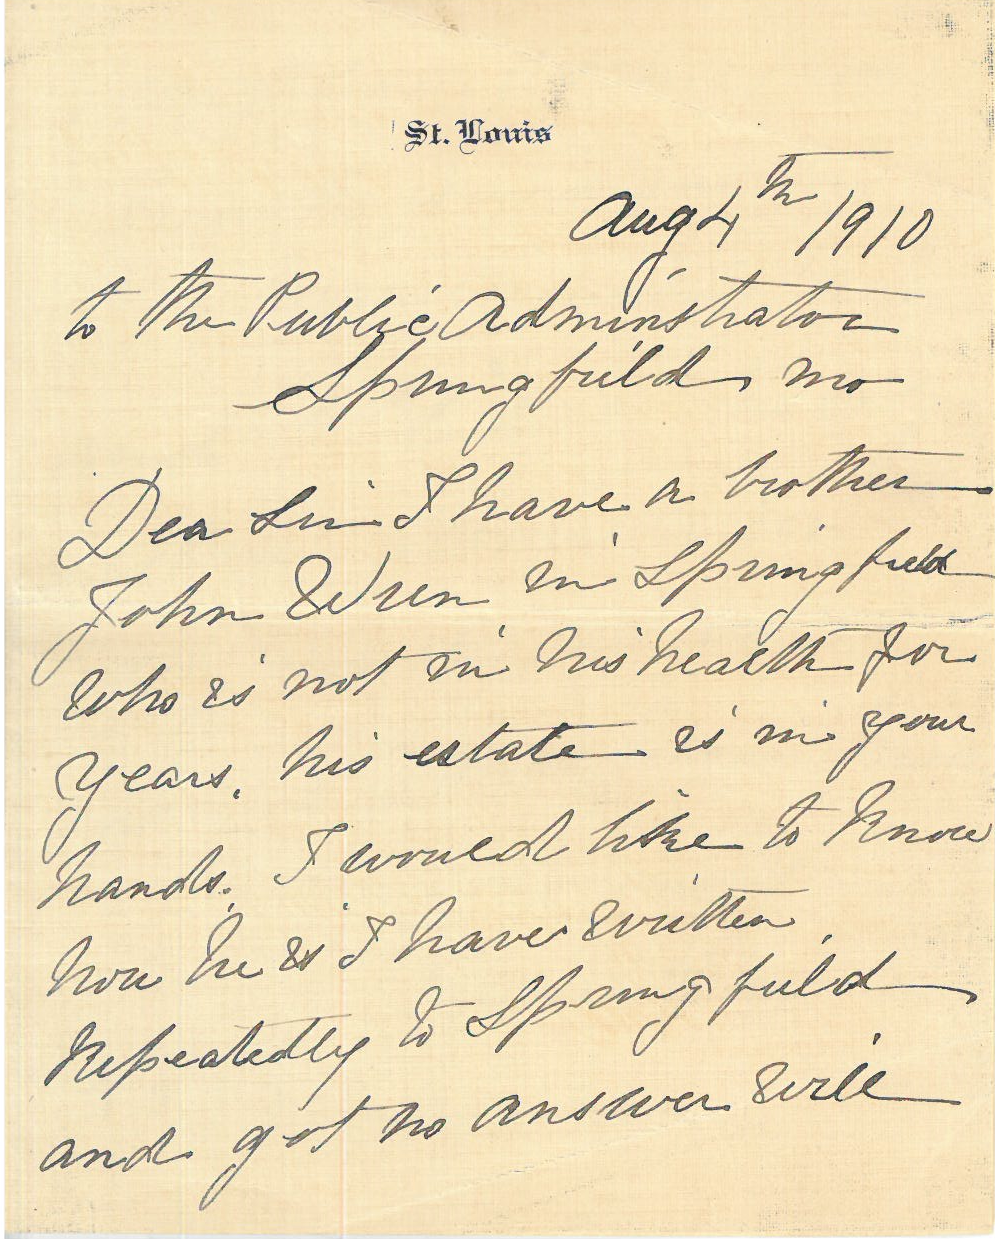 St. Louis
Aug 4th 1910
to the Public Adminstrator
Springfield, Mo
Dear Sir I have a brother
John Wren in Springfield
who is not in his health for
years. his estate is in your
hands. I would like to know
how he is I have written
repeatedly to Springfield
and got no answer will